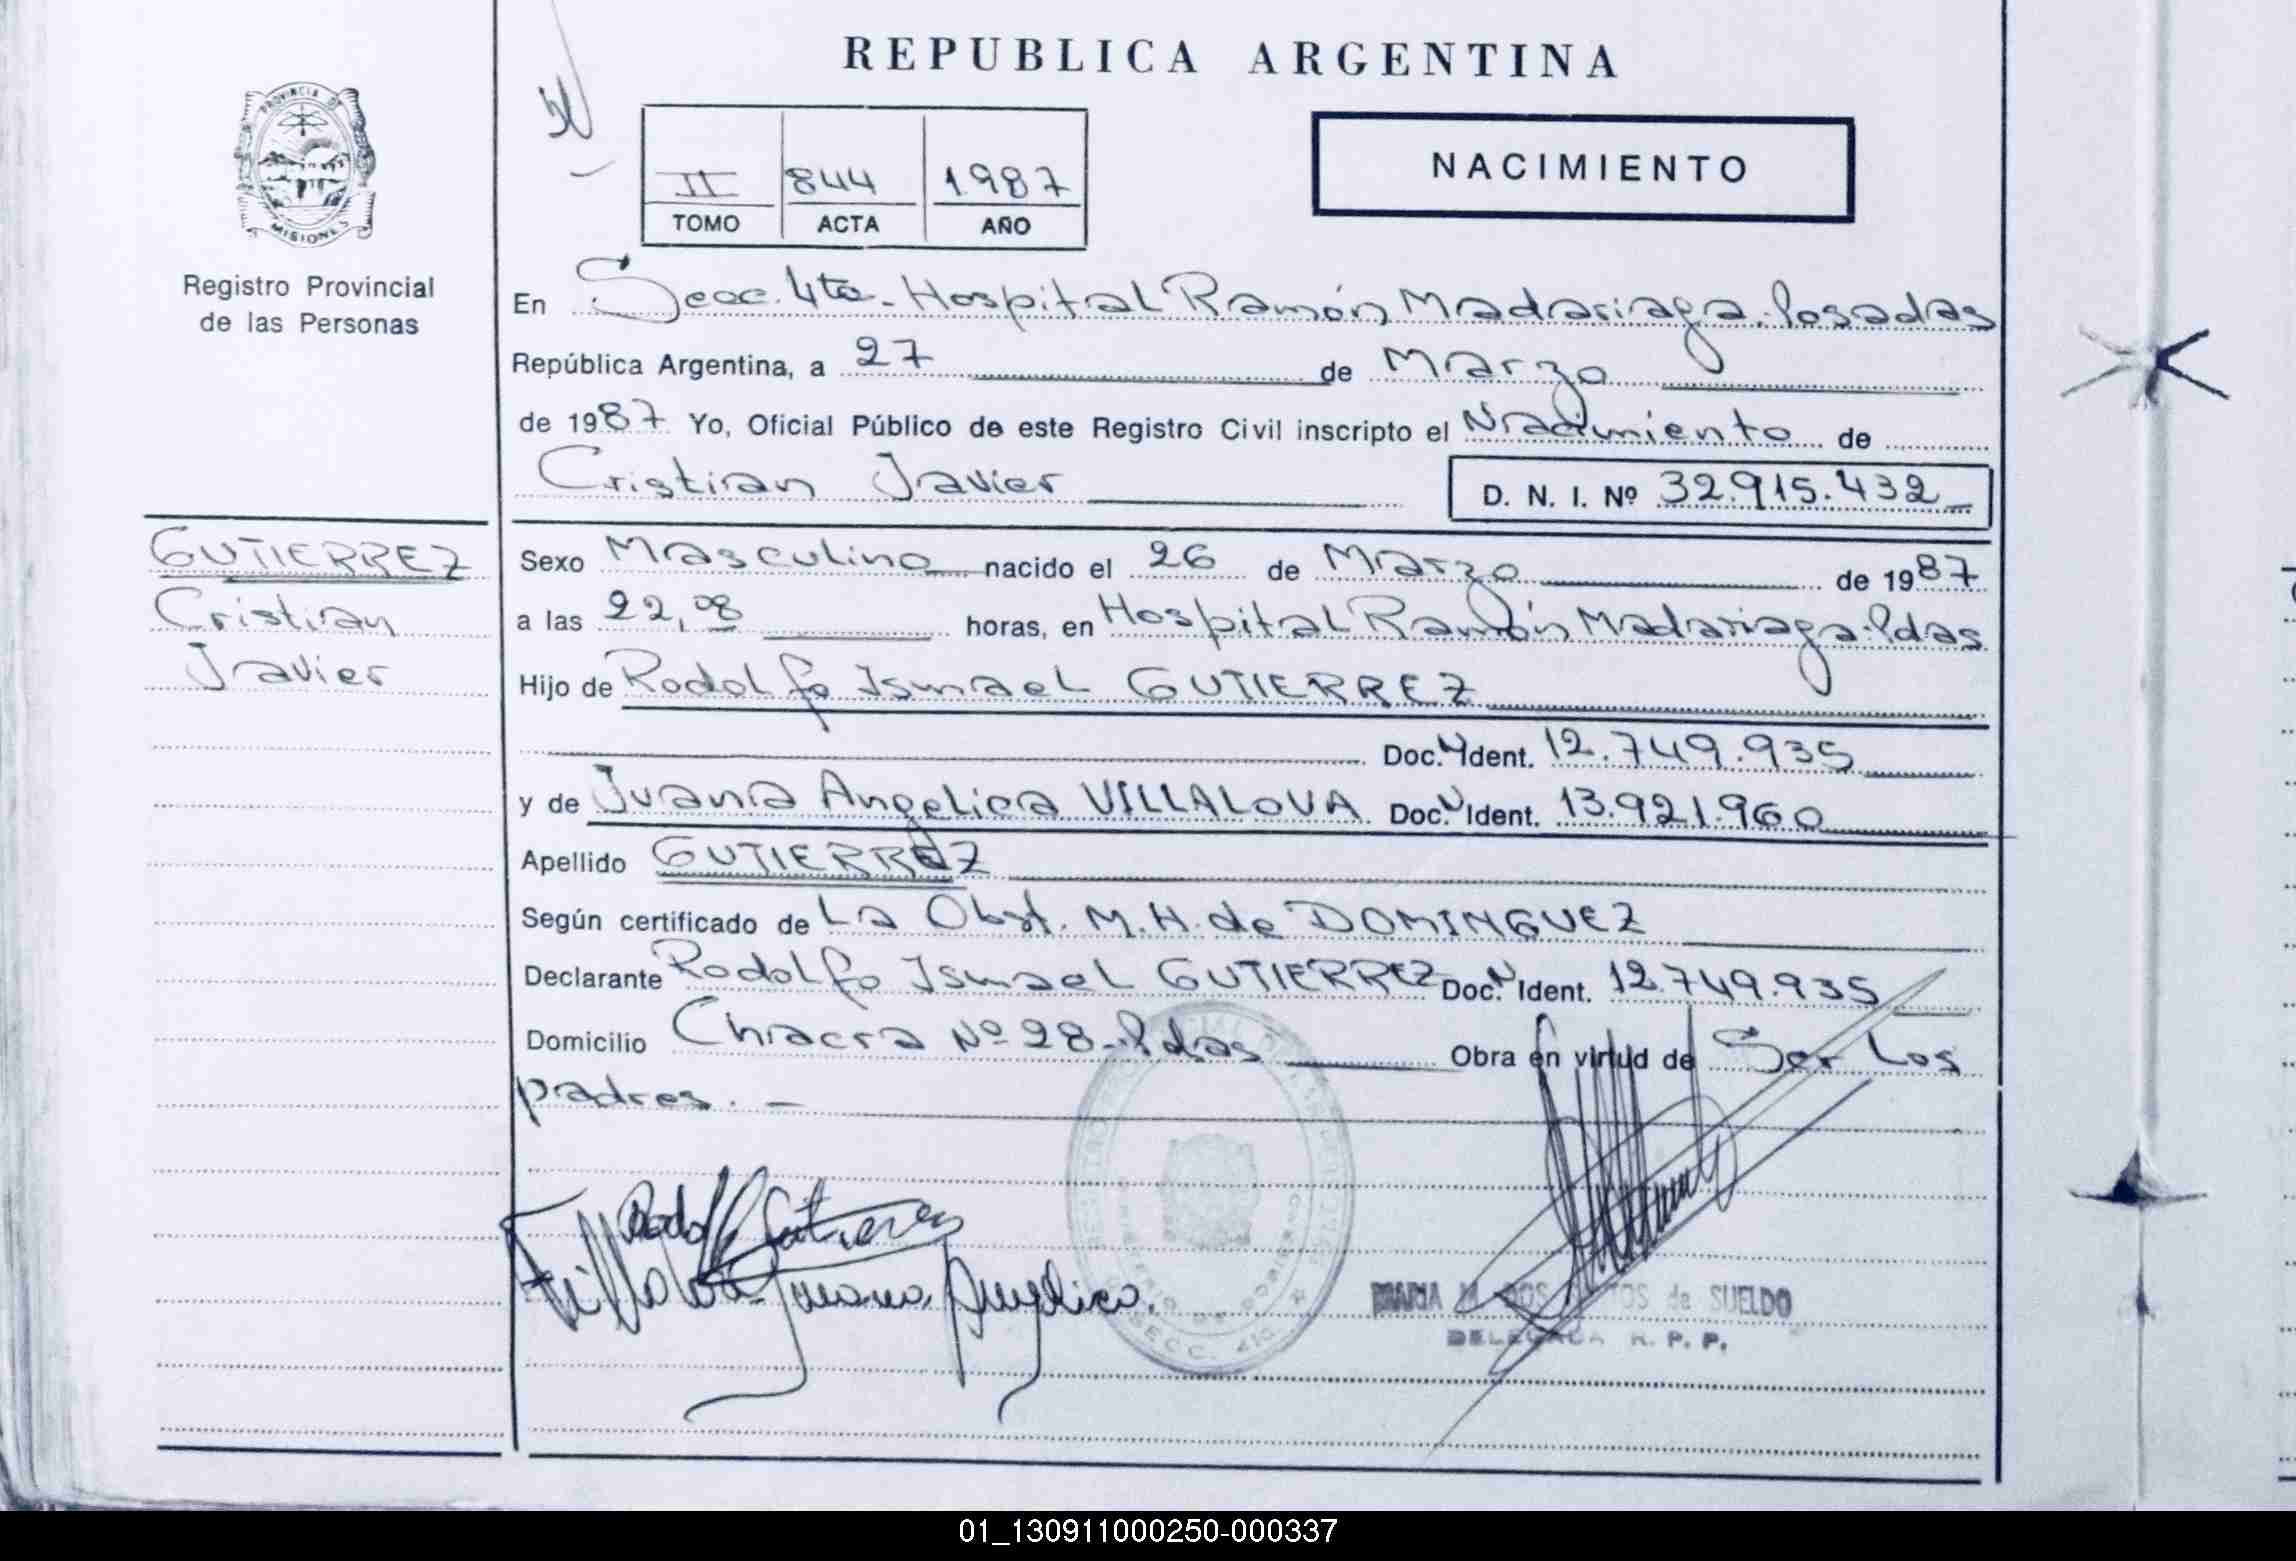 REPUBLICA ARGENTINA
PROVINCIA DE
MISIONES
Registro Provincial
de las Personas
II 844 1987
TOMO ACTA AÑO
NACIMIENTO
En Secc. 4ta. Hospital Ramón Madariaga. Posadas
República Argentina, a 27 de Marzo
de 1987 Yo, Oficial Público de este Registro Civil inscripto el Nacimiento de
Cristian Javier D. N. I. Nº 32.915.432
GUTIERREZ
Cristian
Javier
Sexo Masculino nacido el 26 de Marzo de 1987
a las 22,08 horas, en Hospital Ramón Madariaga. Pdas
Hijo de Rodolfo Ismael GUTIERREZ
Doc. N Ident. 12.749.935
y de Juana Angelica VILLALOVA Doc. N Ident. 13.921.960
Apellido GUTIERREZ
Según certificado de La Obst. M. H. de DOMINGUEZ
Declarante Rodolfo Ismael GUTIERREZ Doc. N Ident. 12.749.935
Domicilio Chacra Nº 28 - Pdas Obra en virtud de Ser Los
padres. -
Rodolfo Gutierrez
Villalova Juana Angelica.
MARIA de SUELDO
DELEGADA R. P. P.
01_130911000250-000337